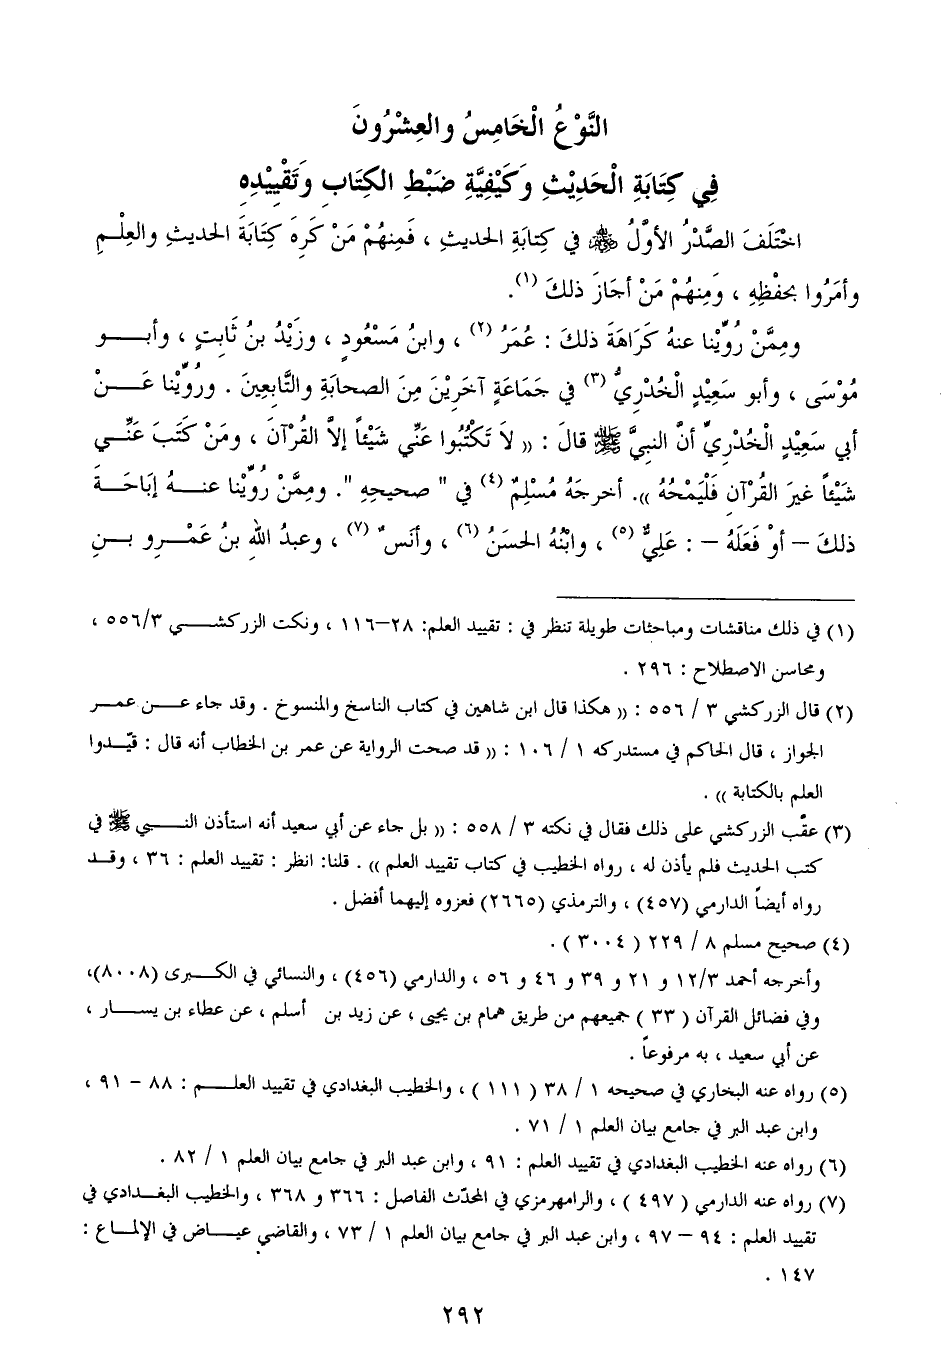 النَّوْعُ الْخَامِسُ والعِشْرُونَ
فِي كِتَابَةِ الْحَدِيْثِ وَكَيْفِيَّةِ ضَبْطِ الكِتَابِ وَتَقْيِيْدِهِ
اخْتَلَفَ الصَّدْرُ الأوَّلُ ﷺ في كِتابَةِ الحديثِ ، فَمِنهُمْ مَنْ كَرِهَ كِتَابَةَ الحديثِ والعِلْمِ
وأمَرُوا بحفْظِهِ ، وَمِنهُمْ مَنْ أجازَ ذلكَ (١).
ومِمَّنْ رُوِّيْنا عنهُ كَرَاهَةَ ذلكَ : عُمَرُ (٢) ، وابنُ مَسْعُودٍ ، وزَيْدُ بنُ ثَابتٍ ، وأبــو
مُوْسَى ، وأبو سَعِيْدٍ الْخُدْرِيُّ (٣) في جَمَاعَةٍ آخَرِيْنَ مِنَ الصحابَةِ والتَّابعِينَ . ورُوِّيْنا عَــنْ
أبي سَعِيْدٍ الْخُدْرِيِّ أنَّ النبيَّ ﷺ قالَ : (( لاَ تَكْتُبُوا عَنِّي شَيْئاً إلاَّ القُرْآنَ ، ومَنْ كَتَبَ عَنِّــي
شَيْئاً غيرَ القُرْآنِ فَلْيَمْحُهُ )). أخرجَهُ مُسْلِمٌ (٤) في " صحيحِهِ ". ومِمَّنْ رُوِّيْنا عنــهُ إبَاحَــةَ
ذلكَ – أوْ فَعَلَهُ – : عَلِيٌّ (٥) ، وابْنُهُ الحسَنُ (٦) ، وأنَسٌ (٧) ، وعبدُ اللهِ بنُ عَمْــرِو بــنِ
(١) في ذلك مناقشات ومباحثات طويلة تنظر في : تقييد العلم: ٢٨–١١٦ ، ونكت الزركشــي ٥٥٦/٣ ،
ومحاسن الاصطلاح : ٢٩٦ .
(٢) قال الزركشي ٣ / ٥٥٦ : (( هكذا قال ابن شاهين في كتاب الناسخ والمنسوخ . وقد جاء عــن عمــر
الجواز ، قال الحاكم في مستدركه ١ / ١٠٦ : (( قد صحت الرواية عن عمر بن الخطاب أنه قال : قيّــدوا
العلم بالكتابة )) .
(٣) عقّب الزركشي على ذلك فقال في نكته ٣ / ٥٥٨ : (( بل جاء عن أبي سعيد أنه استأذن النــبي ﷺ في
كتب الحديث فلم يأذن له ، رواه الخطيب في كتاب تقييد العلم )) . قلنا: انظر : تقييد العلم : ٣٦ ، وقــد
رواه أيضاً الدارمي (٤٥٧) ، والترمذي (٢٦٦٥) فعزوه إليهما أفضل .
(٤) صحيح مسلم ٨ / ٢٢٩ ( ٣٠٠٤ ) .
وأخرجه أحمد ١٢/٣ و ٢١ و ٣٩ و ٤٦ و ٥٦ ، والدارمي (٤٥٦) ، والنسائي في الكــبرى (٨٠٠٨)،
وفي فضائل القرآن ( ٣٣ ) جميعهم من طريق همام بن يحيى ، عن زيد بن أسلم ، عن عطاء بن يســار ،
عن أبي سعيد ، به مرفوعاً .
(٥) رواه عنه البخاري في صحيحه ١ / ٣٨ ( ١١١ ) ، والخطيب البغدادي في تقييد العلــم : ٨٨ – ٩١ ،
وابن عبد البر في جامع بيان العلم ١ / ٧١ .
(٦) رواه عنه الخطيب البغدادي في تقييد العلم : ٩١ ، وابن عبد البر في جامع بيان العلم ١ / ٨٢ .
(٧) رواه عنه الدارمي ( ٤٩٧ ) ، والرامهرمزي في المحدّث الفاصل : ٣٦٦ و ٣٦٨ ، والخطيب البغــدادي في
تقييد العلم : ٩٤ – ٩٧ ، وابن عبد البر في جامع بيان العلم ١ / ٧٣ ، والقاضي عيــاض في الإلماع :
١٤٧ .
٢٩٢